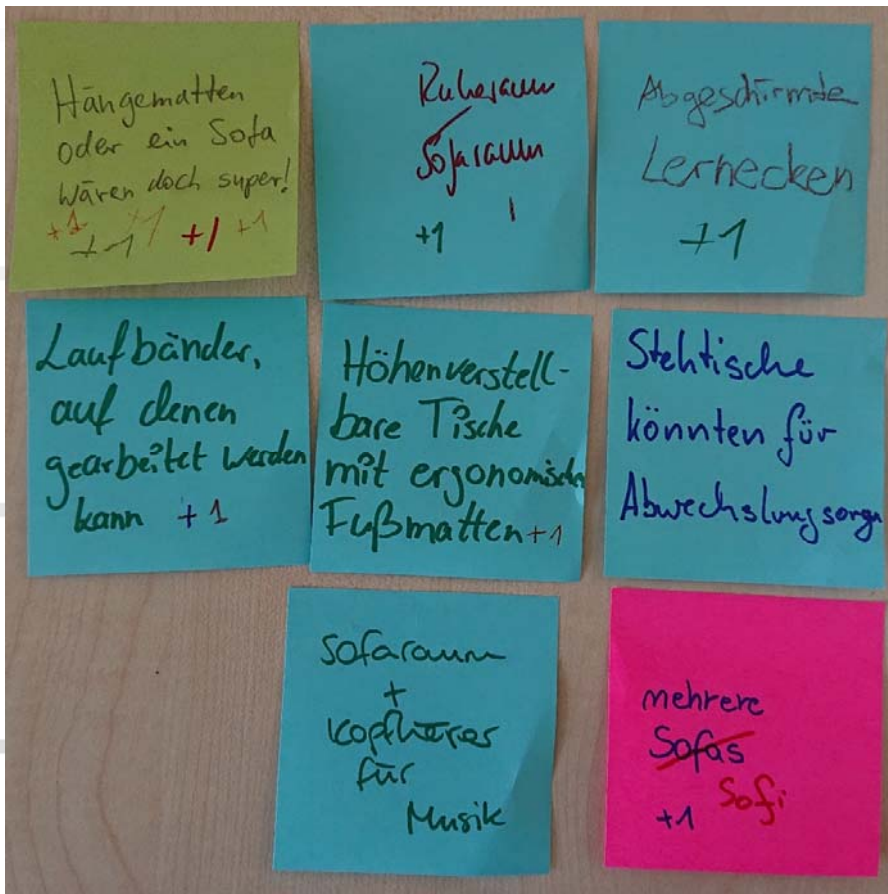 Hängematten
oder ein Sofa
wären doch super!
+1 +1 +1 +1 +1
Ruheraum
/
Sofaraum
+1 |
Abgeschirmte
Lernecken
+1
Laufbänder,
auf denen
gearbeitet werden
kann +1
Höhenverstell-
bare Tische
mit ergonomischen
Fußmatten +1
Stehtische
könnten für
Abwechslung sorgen
Sofaraum
+
Kopfhörer
für
Musik
mehrere
Sofas
Sofi
+1